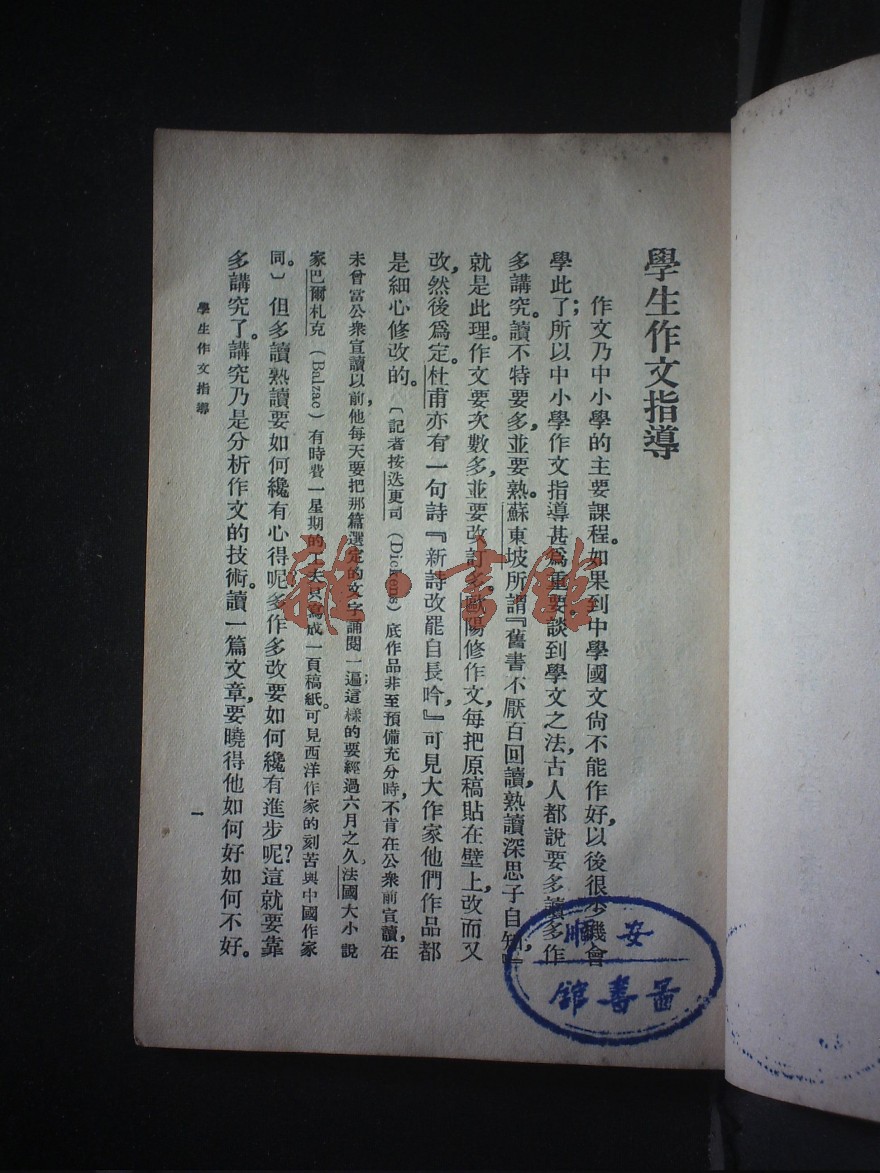 學生作文指導
作文乃中小學的主要課程。如果到中學國文尙不能作好，以後很少機會
學此了；所以中小學作文指導甚爲重要。談到學文之法，古人都說要多讀多作
多講究。讀不特要多，並要熟。蘇東坡所謂『舊書不厭百回讀，熟讀深思子自知』
就是此理。作文要次數多，並要改訂多。歐陽修作文，每把原稿貼在壁上，改而又
改，然後爲定。杜甫亦有一句詩『新詩改罷自長吟，』可見大作家他們作品都
是細心修改的。〔記者按迭更司（Dickens）底作品非至預備充分時，不肯在公衆前宣讀，在
未曾當公衆宣讀以前，他每天要把那篇選定的文字誦閱一遍；這樣的要經過六月之久。法國大小說
家巴爾札克（Balzac）有時費一星期的工夫只寫成一頁稿紙。可見西洋作家的刻苦與中國作家
同。〕但多讀熟讀要如何纔有心得呢？多作多改要如何纔有進步呢？這就要靠
多講究了。講究乃是分析作文的技術。讀一篇文章，要曉得他如何好如何不好。
學生作文指導
一
安順
圖書館
雜·書館